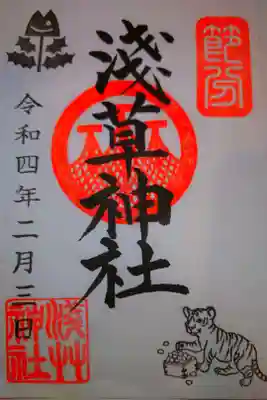 節分
淺草神社
令和四年二月三日
淺草神社